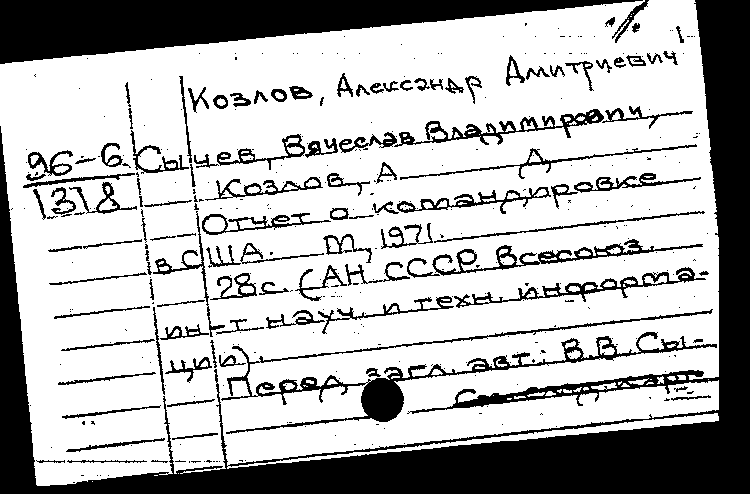 Козлов, Александр Дмитриевич
96-6
1318
Сычев, Вячеслав Владимирович,
Козлов, А Д
Отчет о командировке
в США. М, 1971.
28с. (АН СССР. Всесоюз.
ин-т науч. и техн. информа-
ции).
Перед загл. авт.: В.В. Сы-
См. след. карт.